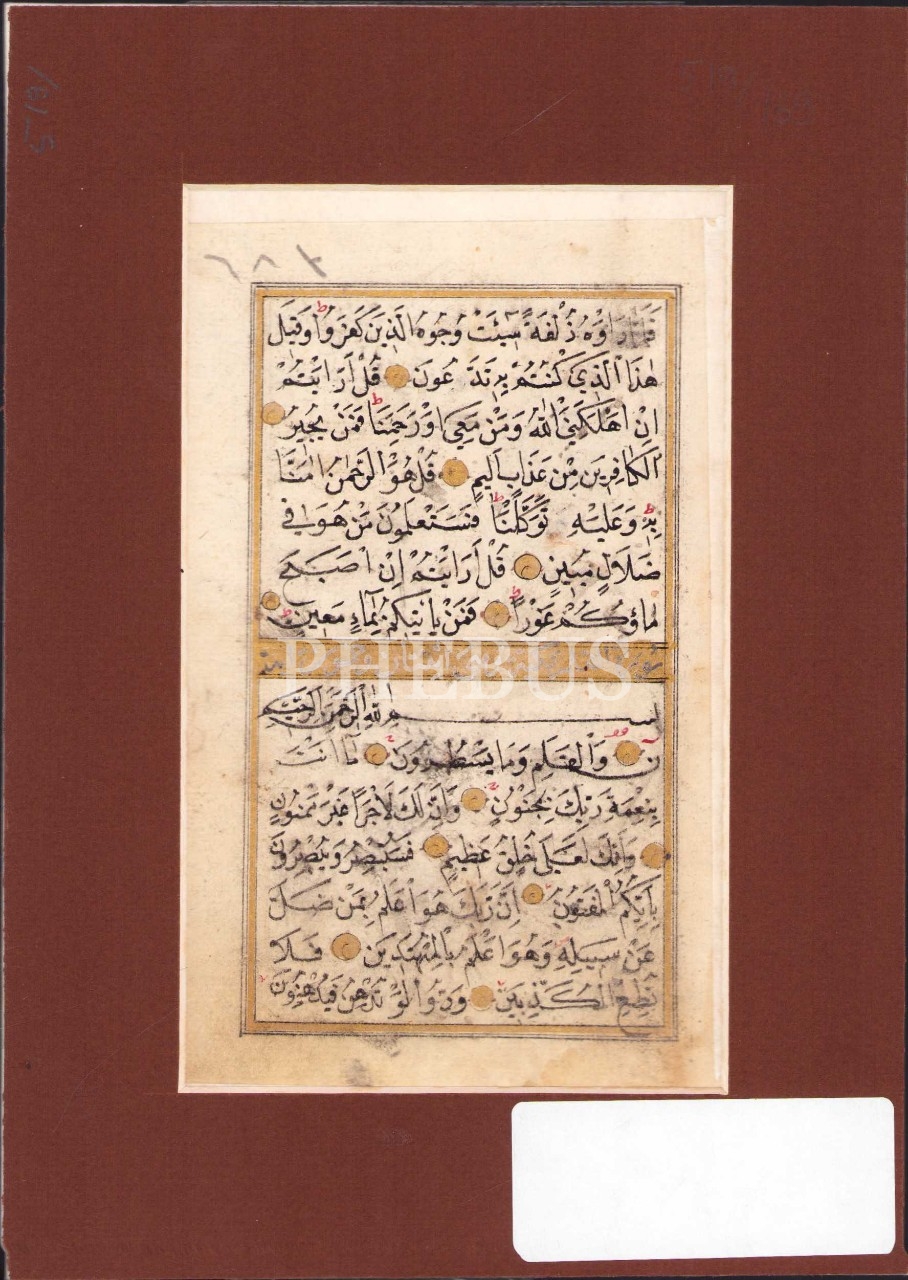 فَلَمَّا رَاَوْهُ زُلْفَةً سِيئَتْ وُجُوهُ الَّذِينَ كَفَرُوا وَقِيلَ
هٰذَا الَّذِي كُنْتُمْ بِهِ تَدَّعُونَ قُلْ اَرَاَيْتُمْ
اِنْ اَهْلَكَنِيَ اللّٰهُ وَمَنْ مَعِيَ اَوْ رَحِمَنَا فَمَنْ يُجِيرُ
الْكَافِرِينَ مِنْ عَذَابٍ اَلِيمٍ قُلْ هُوَ الرَّحْمٰنُ اٰمَنَّا
بِهِ وَعَلَيْهِ تَوَكَّلْنَا فَسَتَعْلَمُونَ مَنْ هُوَ فِي
ضَلَالٍ مُبِينٍ قُلْ اَرَاَيْتُمْ اِنْ اَصْبَحَ
مَاؤُكُمْ غَوْرًا فَمَنْ يَاْتِيكُمْ بِمَاءٍ مَعِينٍ
PHEBUS
بِسْمِ اللّٰهِ الرَّحْمٰنِ الرَّحِيمِ
ن وَالْقَلَمِ وَمَا يَسْطُرُونَ مَا اَنْتَ
بِنِعْمَةِ رَبِّكَ بِمَجْنُونٍ وَاِنَّ لَكَ لَاَجْرًا غَيْرَ مَمْنُونٍ
وَاِنَّكَ لَعَلٰى خُلُقٍ عَظِيمٍ فَسَتُبْصِرُ وَيُبْصِرُونَ
بِاَيِّكُمُ الْمَفْتُونُ اِنَّ رَبَّكَ هُوَ اَعْلَمُ بِمَنْ ضَلَّ
عَنْ سَبِيلِهِ وَهُوَ اَعْلَمُ بِالْمُهْتَدِينَ فَلَا
تُطِعِ الْمُكَذِّبِينَ وَدُّوا لَوْ تُدْهِنُ فَيُدْهِنُونَ